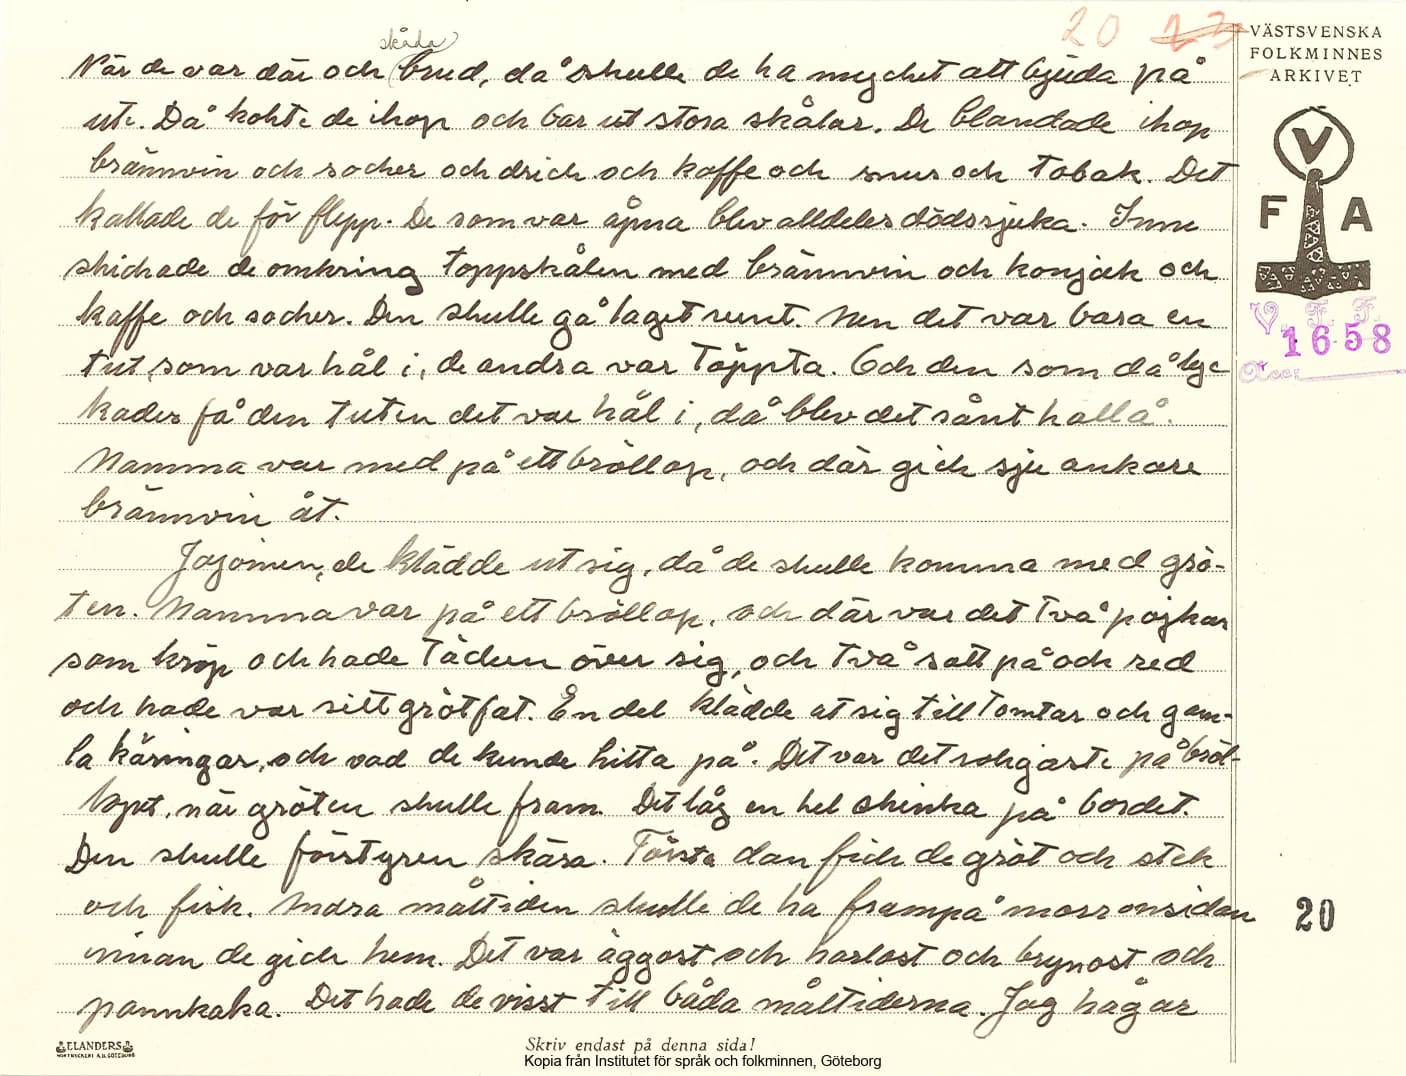 20 23
VÄSTSVENSKA
FOLKMINNES
ARKIVET
V
F A
V. F. F.
1658
Acc:
skåda
När de var där och (brud, då skulle de ha mycket att bjuda på
ute. Då kokte de ihop och bar ut stora skålar. De blandade ihop
brännvin och socker och dricka och kaffe och snus och tobak. Det
kallade de för flepp. De som var åpna blev alldeles dödssjuka. Inne
skickade de omkring toppskålen med brännvin och konjak och
kaffe och socker. Den skulle gå laget runt. Men det var bara en
tut, som var hål i, de andra var täppta. Och den som då lyc-
kades få den tuten det var hål i, då blev det sånt hallå.
Mamma var med på ett bröllop, och där gick sju ankare
brännvin åt.
Jajamen, de klädde ut sig, då de skulle komma med grö-
ten. Mamma var på ett bröllop, och där var det två pojkar
som kröp och hade täcken över sig, och två satt på och red
och hade var sitt grötfat. En del klädde ut sig till tomtar och gam-
la käringar, och vad de kunde hitta på. Det var det roligaste på bröl-
lopet, när gröten skulle fram. Det låg en hel skinka på bordet.
Den skulle förstyren skära. Första dan fick de gröt och stek
och fisk. Andra måltiden skulle de ha frampå morronsidan
innan de gick hem. Det var äggost och harlost och brynost och
pannkaka. Det hade de visst till båda måltiderna. Jag hågar
20
ELANDERS
Skriv endast på denna sida!
Kopia från Institutet för språk och folkminnen, Göteborg